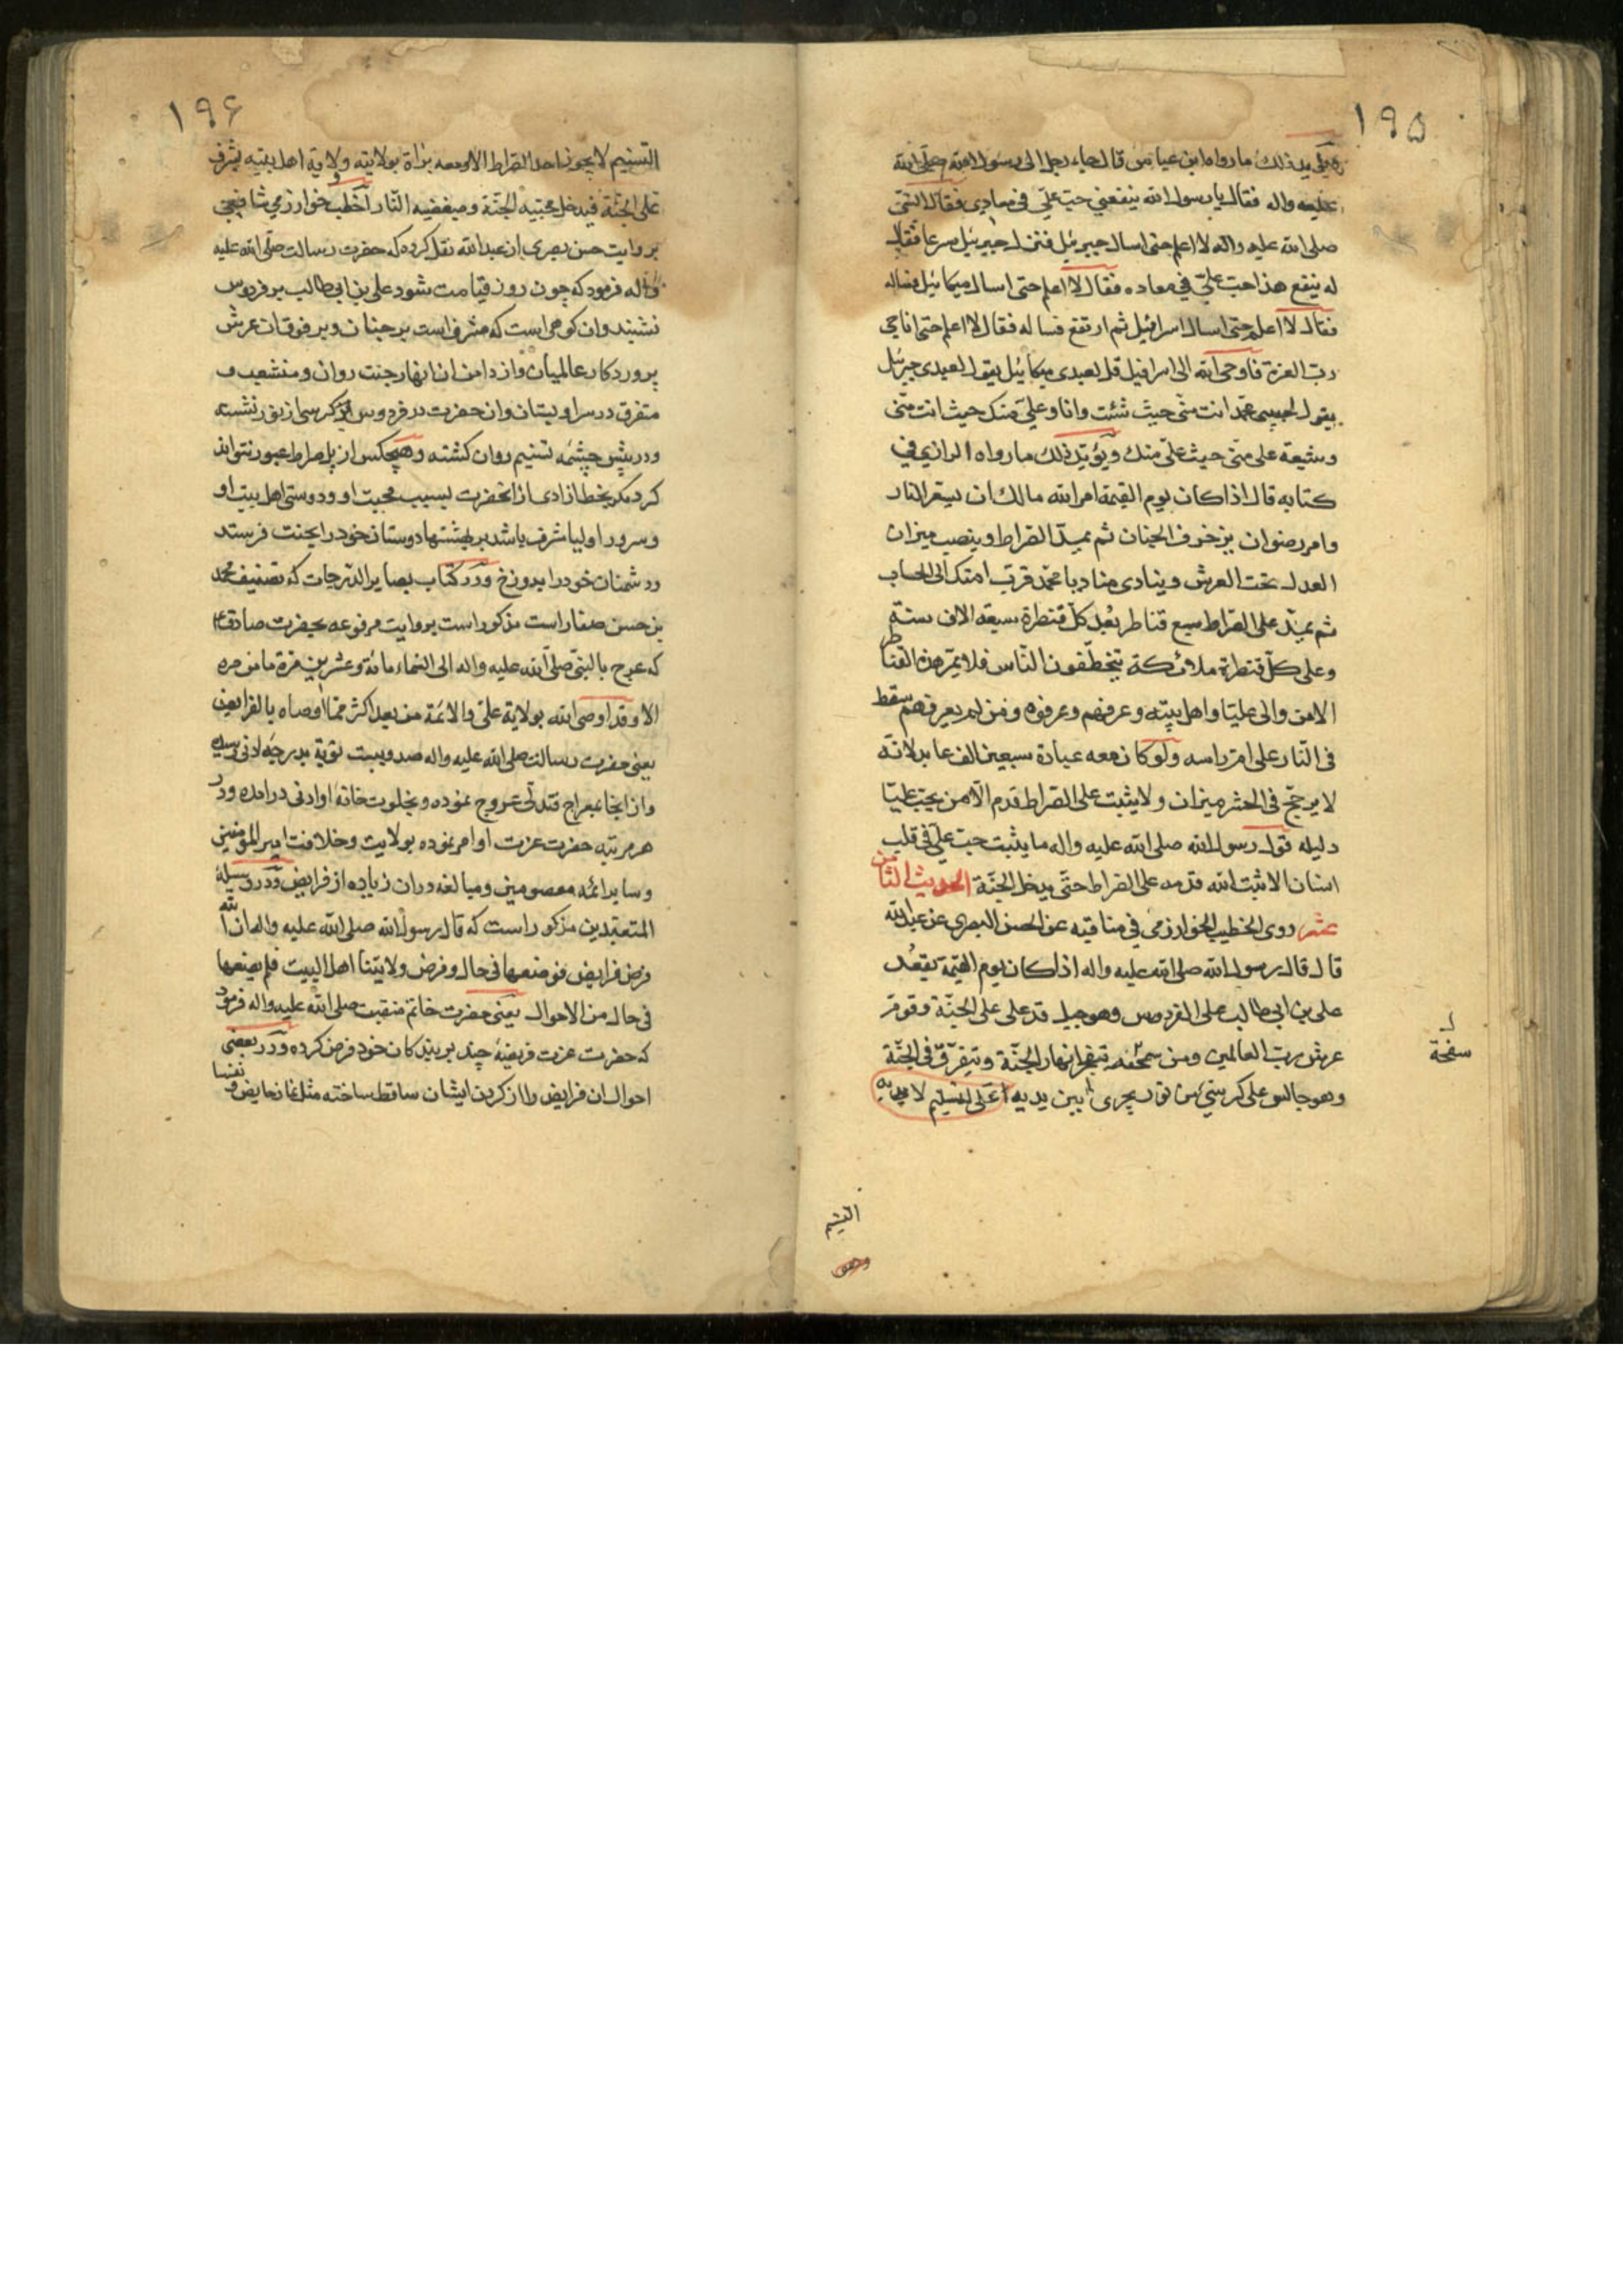 ١٩٥
ذلك ما رواه ابن عباس قال جاء رجل الى رسول الله صلى الله
عليه واله فقال يا رسول الله ينفعني حب علي في معادي فقال النبي
صلى الله عليه واله لا اعلم حتى اسال جبرئيل فنزل جبرئيل مسرعا فقال
له ينفع هذا حب علي في معاده فقال لا اعلم حتى اسال ميكائيل فساله
فقال لا اعلم حتى اسال اسرافيل ثم ارتفع فساله فقال لا اعلم حتى اناجي
رب العزة فاوحى الله الى اسرافيل قل لعبدي ميكائيل يقول لعبدي جبرئيل
يقول لحبيبي محمد انت مني حيث شئت وانا وعلي منك حيث انت مني
وشيعة علي مني حيث علي منك ويؤيد ذلك ما رواه الرازي في
كتابه قال اذا كان يوم القيمة امر الله مالك ان يسعر النار
وامر رضوان بزخرف الجنان ثم يمد الصراط وينصب ميزان
العدل تحت العرش وينادي مناد يا محمد قرب امتك الى الحساب
ثم يمد على الصراط سبع قناطر بعد كل قنطرة سبعة الاف سنة
وعلى كل قنطرة ملائكة يتخطفون الناس فلا يمر هذه القناطر
الا من والى عليا واهل بيته وعرفهم وعرفوه ومن لم يعرفهم سقط
في النار على ام راسه ولو كان معه عبادة سبعين الف عابد لانه
لا يرجح في الحشر ميزان ولا يثبت على الصراط قدم الا من يحب عليا
دليله قول رسول الله صلى الله عليه واله ما يثبت حب علي في قلب
انسان الا ثبت الله قدمه على الصراط حتى يدخل الجنة الحديث الثامن
عشر روى الخطيب الخوارزمي في مناقبه عن الحسن البصري عن عبد الله
قال قال رسول الله صلى الله عليه واله اذا كان يوم القيمة يقعد
علي بن ابي طالب على الفردوس وهو جبل قد على على الجنة وفوقه
عرش رب العالمين ومن سفحه تتفجر انهار الجنة وتتفرق في الجنة
وهو جالس على كرسي من نور يجري بين يديه
ل
سفحة
التسنيم
١٩۶
التسنيم لا يجوز احد الصراط الا ومعه براة بولايته وولاية اهل بيته يشرف
على الجنة فيدخل محبيه الجنة ومبغضيه النار اخطب خوارزمي شافعي
بروايت حسن بصري از عبد الله نقل كرده كه حضرت رسالت صلى الله عليه
واله فرمود كه چون روز قيامت شود علي بن ابي طالب بر فردوس
نشيند وان كوهى است كه مشرف است بر جنان وبر فوق ان عرش
پروردكار عالميان واز دامن ان انهار جنت روان ومنشعب و
متفرق در سراوبستان وان حضرت در فردوس بر كرسى از نور نشسته
ودر پيش چشمه تسنيم روان كشته وهيچكس از پل صراط عبور نتواند
كرد مكر بخط ازادى از انحضرت بسبب محبت او ودوستى اهل بيت او
وسرور اوليا مشرف باشد بر بهشتها دوستان خود را بجنت فرستد
ودشمنان خود را بدوزخ ودر كتاب بصاير الدرجات كه تصنيف محمد
بن حسن صفار است مذكور است بروايت مرفوعه بحضرت صادق ع
كه عرج بالنبي صلى الله عليه واله الى السماء مائة وعشرين مرة ما من مره
الا وقد اوصى الله بولاية علي والائمة من بعد اكثر مما اوصاه بالفرايض
يعنى حضرت رسالت صلى الله عليه واله صد وبيست نوبة بدرجه ادنى رسيده
واز انجا بمعراج فتدلى عروج نموده وبخلوت خانه او ادنى درامده ودر
هر مرتبه حضرت عزت او امر نموده بولايت وخلافت امير المؤمنين
وساير ائمه معصومين ومبالغه دران زياده از فرايض ودر وسيلة
المتعبدين مذكور است كه قال رسول الله صلى الله عليه واله ان الله
فرض فرايض فوضعها في حال وفرض ولايتنا اهل البيت فلم يضعها
في حال من الاحوال يعنى حضرت خاتم منقبت صلى الله عليه واله فرمود
كه حضرت عزت فريضه چند بر بندكان خود فرض كرده ودر بعضى
احوال ان فرايض را از كردن ايشان ساقط ساخته مثل نماز حايض ونفسا